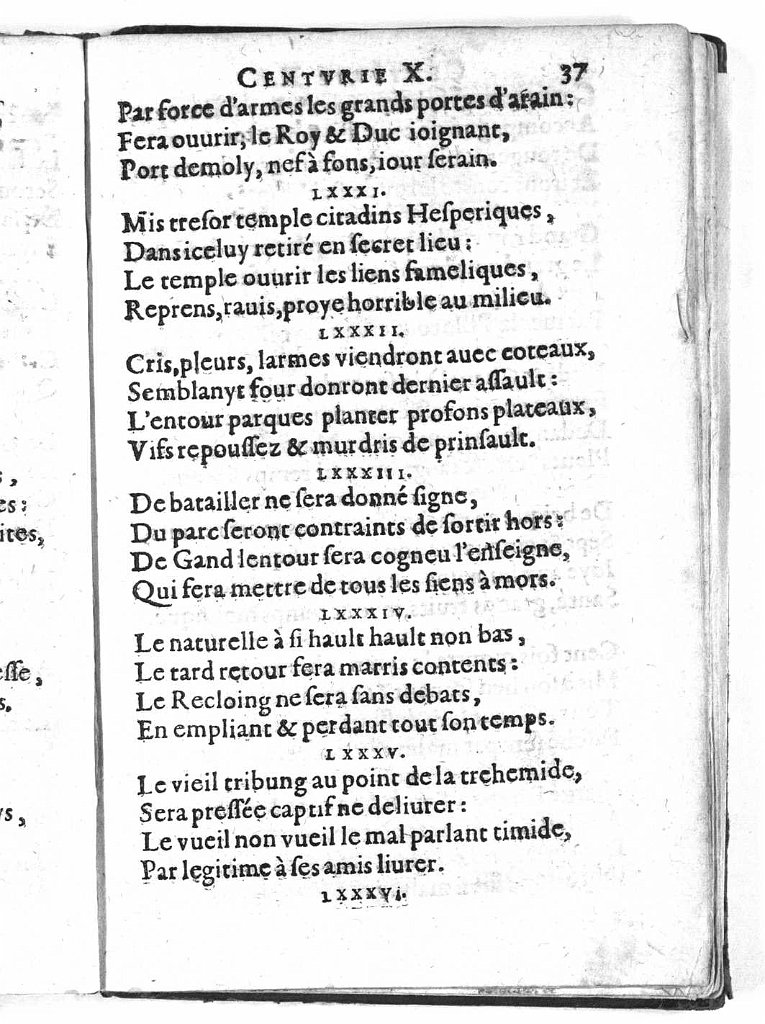 CENTVRIE X. 37
Par force d'armes les grands portes d'arain:
Fera ouurir, le Roy & Duc ioignant,
Port demoly, nef à fons, iour serain.
LXXXI.
Mis tresor temple citadins Hesperiques,
Dans iceluy retiré en secret lieu:
Le temple ouurir les liens fameliques,
Reprens, rauis, proye horrible au milieu.
LXXXII.
Cris, pleurs, larmes viendront auec coteaux,
Semblanyt four donront dernier assault:
L'entour parques planter profons plateaux,
Vifs repoussez & murdris de prinsault.
LXXXIII.
De batailler ne sera donné signe,
Du parc seront contraints de sortir hors:
De Gand lentour sera cogneu l'enseigne,
Qui fera mettre de tous les siens à mors.
LXXXIV.
Le naturelle à si hault hault non bas,
Le tard retour fera marris contents:
Le Recloing ne sera sans debats,
En empliant & perdant tout son temps.
LXXXV.
Le vieil tribung au point de la trehemide,
Sera pressée captif ne deliurer:
Le vueil non vueil le mal parlant timide,
Par legitime à ses amis liurer.
LXXXVI.
,
es:
ites,
esse,
s.
s,